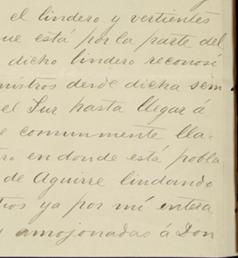 el lindero y vertientes
que está por la parte del
dicho lindero reconosi
nistros desde dicha sem
el Sur hasta llegar á
e comunmente lla-
ro en donde está pobla
de Aguirre lindando
tros ya por mi entera
y amojonadas á Don